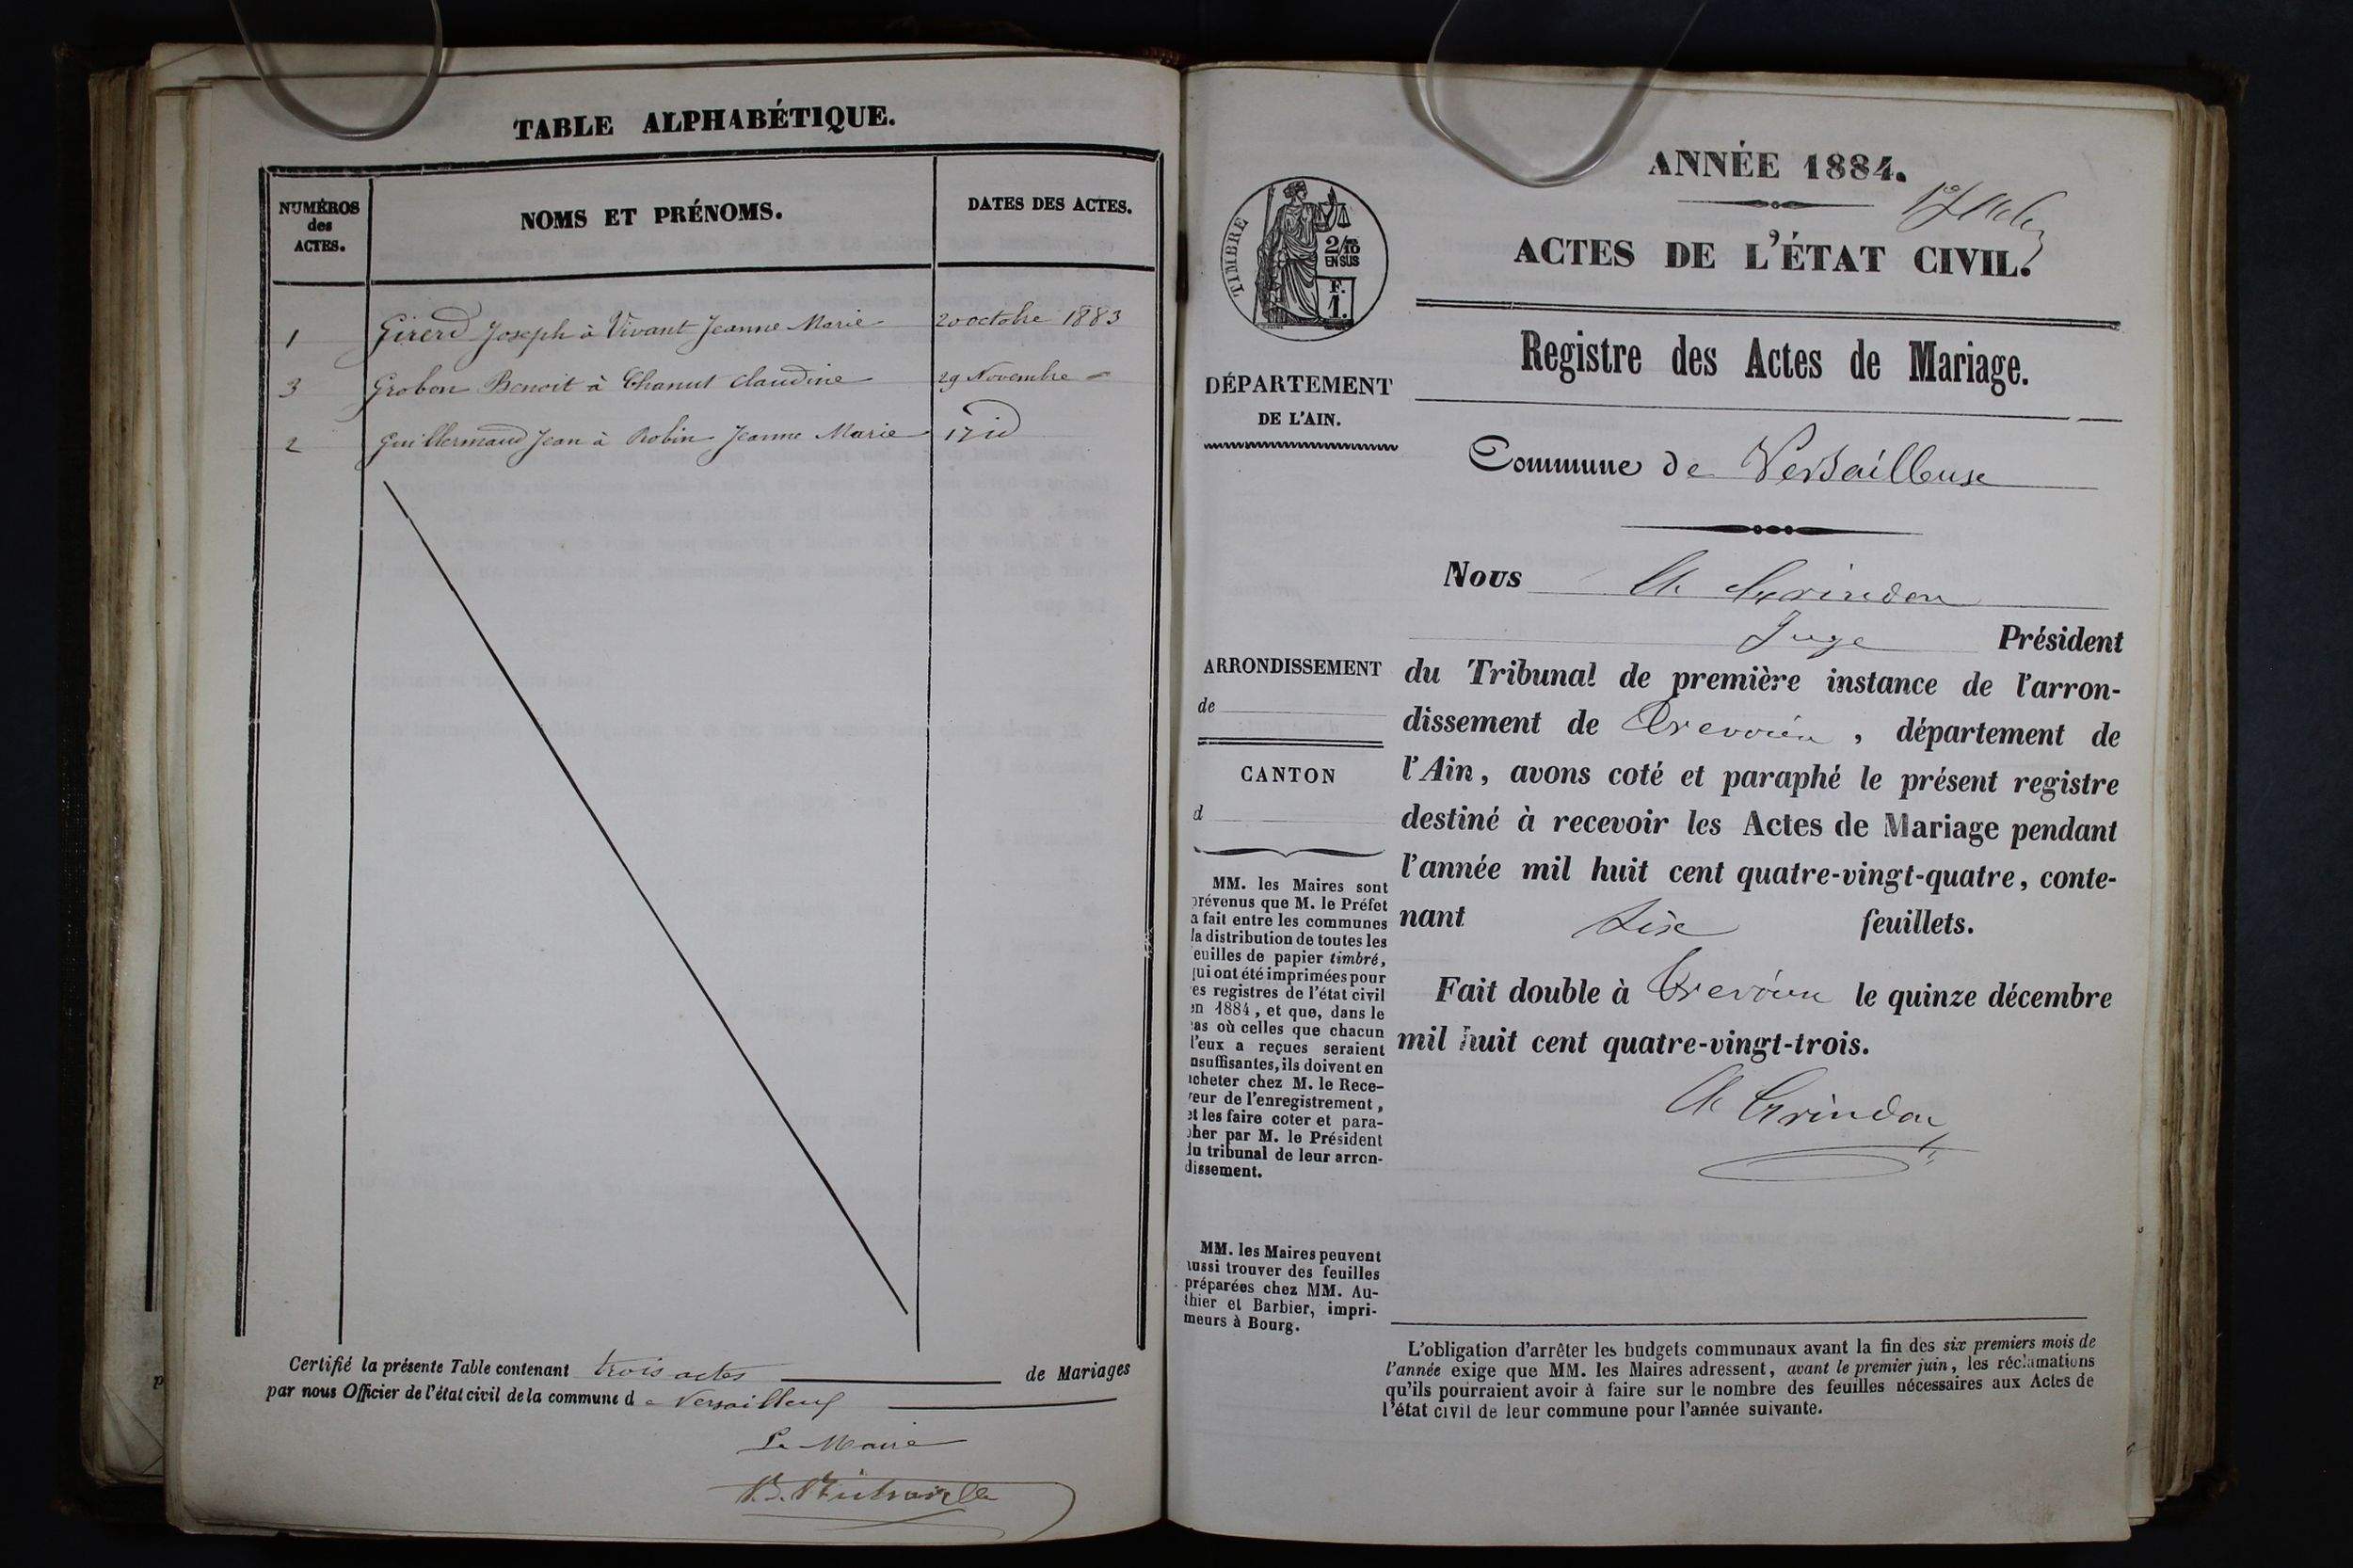 TABLE ALPHABÉTIQUE.
NUMÉROS
des
ACTES.
NOMS ET PRÉNOMS.
DATES DES ACTES.
1 Girerd Joseph à Vivant Jeanne Marie 20 octobre 1883
3 Grobon Benoit à Chanut Claudine 29 Novembre
2 Guillermaud Jean à Robin Jeanne Marie 17 id
Certifié la présente Table contenant trois actes de Mariages
par nous Officier de l'état civil de la commune de Versailleux
Le Maire
ANNÉE 1884.
ACTES DE L'ÉTAT CIVIL.
Registre des Actes de Mariage.
TIMBRE
2/10
EN SUS
F.
1.
DÉPARTEMENT
DE L'AIN.
Commune de Versailleux
Nous Ch Grindon
Juge Président
du Tribunal de première instance de l'arron-
dissement de Trevoux, département de
l'Ain, avons coté et paraphé le présent registre
destiné à recevoir les Actes de Mariage pendant
l'année mil huit cent quatre-vingt-quatre, conte-
nant six feuillets.
Fait double à Trevoux le quinze décembre
mil huit cent quatre-vingt-trois.
Ch Grindon
ARRONDISSEMENT
de
CANTON
d
MM. les Maires sont
prévenus que M. le Préfet
a fait entre les communes
la distribution de toutes les
euilles de papier timbré,
qui ont été imprimées pour
es registres de l'état civil
en 1884, et que, dans le
cas où celles que chacun
d'eux a reçues seraient
nsuffisantes, ils doivent en
acheter chez M. le Rece-
veur de l'enregistrement,
et les faire coter et para-
pher par M. le Président
du tribunal de leur arron-
dissement.
MM. les Maires peuvent
aussi trouver des feuilles
préparées chez MM. Au-
thier et Barbier, impri-
meurs à Bourg.
L'obligation d'arrêter les budgets communaux avant la fin des six premiers mois de
l'année exige que MM. les Maires adressent, avant le premier juin, les réclamations
qu'ils pourraient avoir à faire sur le nombre des feuilles nécessaires aux Actes de
l'état civil de leur commune pour l'année suivante.